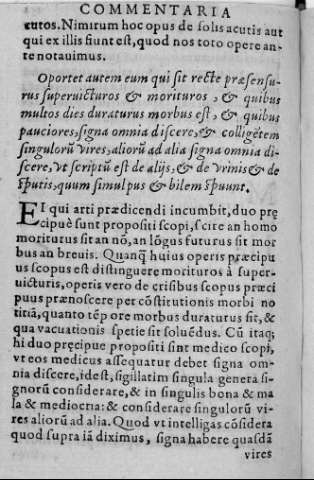 COMMENTARIA
cutos. Nimirum hoc opus de solis acutis aut
qui ex illis fiunt est, quod nos toto opere an-
te notauimus.
Oportet autem eum qui sit recte præsensu-
rus superuicturos & morituros, & quibus
multos dies duraturus morbus est, & quibus
pauciores, signa omnia discere, & colligẽtem
singulorũ vires, aliorũ ad alia signa omnia di-
scere, vt scriptũ est de alijs, & de vrinis & de
sputis, quum simul pus & bilem spuunt.
EI qui arti prædicendi incumbit, duo prę
cipuè sunt propositi scopi, scire an homo
moriturus sit an nõ, an lõgus futurus sit mor
bus an breuis. Quanq̃ huius operis præcipu
us scopus est distinguere morituros à super-
uicturis, operis vero de crisibus scopus præci
puus prænoscere per cõstitutionis morbi no
titiã, quanto tẽpore morbus duraturus sit, &
qua vacuationis spetie sit soluẽdus. Cũ itaq;
hi duo pręcipue propositi sint medico scopi,
vt eos medicus assequatur debet signa om-
nia discere, idest, sigillatim singula genera si-
gnorũ considerare, & in singulis bona & ma
la & mediocria: & considerare singulorũ vi-
res aliorũ ad alia. Quod vt intelligas cõsidera
quod supra iã diximus, signa habere quasdã
vires